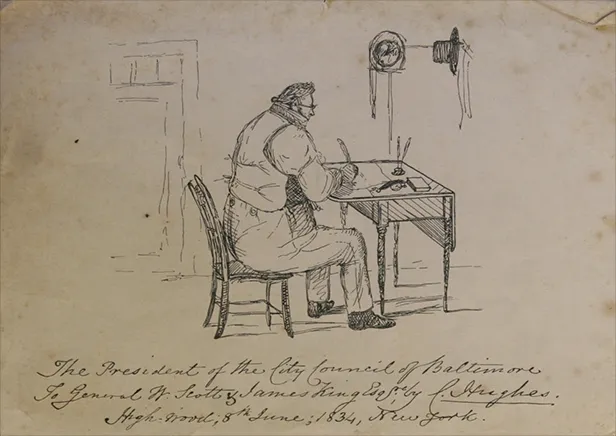 The President of the City Council of Baltimore
To General W. Scott & James King Esqre. by C. Hughes.
High-wood; 8th June; 1834, New York.